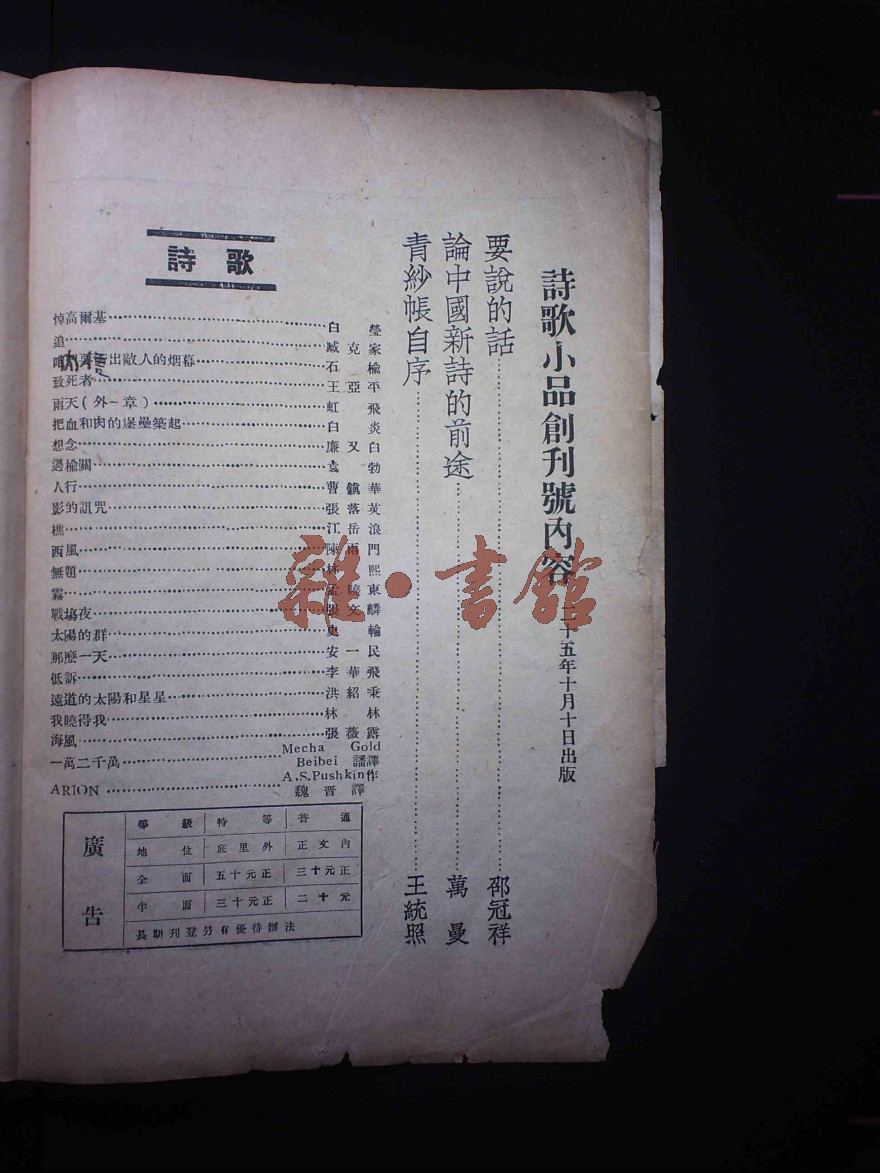 詩歌小品創刊號內容 二十五年十月十日出版
要說的話……邵冠祥
論中國新詩的前途……萬曼
青紗帳自序……王統照
詩歌
悼高爾基……白瑩
追……臧克家
出敵人的烟幕……石榆
致死者……王亞平
雨天(外一章)……虹飛
把血和肉的堡壘築起……白炎
想念……廉又白
過榆關……袁勃
人行……曹鎮華
影的詛咒……張落英
樵……江岳浪
西風……陳雨門
無題……林熙
霧……孟曉東
戰塲夜……張文麟
太陽的群……史輪
那麽一天……安一民
低訴……李華飛
遠道的太陽和星星……洪紹秉
我曉得我……林林
海風……張薇露
一萬二千萬……Mecha Gold
Beibei 譯
A.S.Pushkin作
ARION……魏晋譯
廣告
等級 特等 普通
地位 底里外 正文內
全面 五十元正 三十元正
半面 三十元正 二十元
長期刊登另有優待辦法
雜·書館